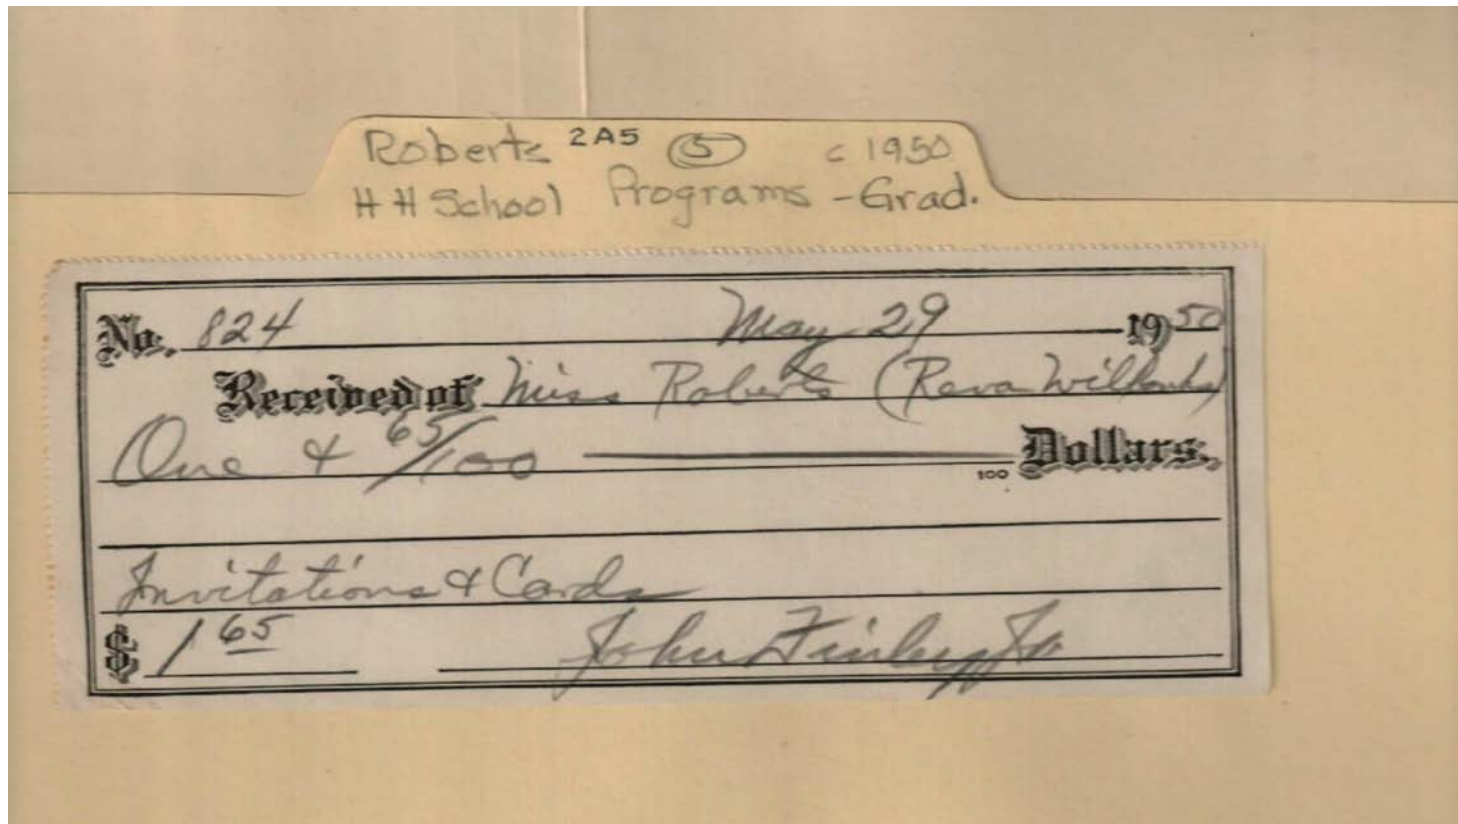 Roberts 2A5 5 c 1950
H H School Programs - Grad.
No. 824 May 29 1950
Received of Miss Roberts (Reva Wilbanks)
One & 65/100 Dollars.
100
Invitations & Cards
$ 1 65 John Finley Jr